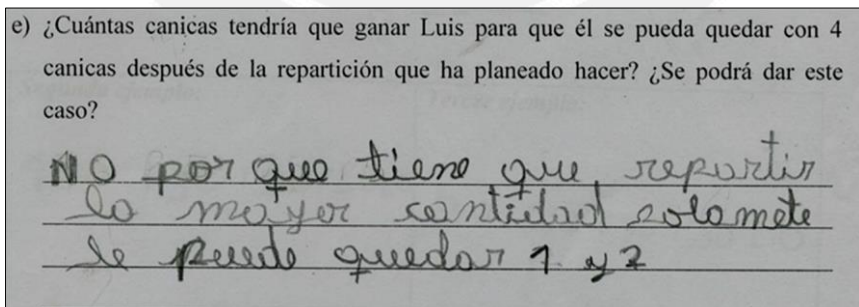 e) ¿Cuántas canicas tendría que ganar Luis para que él se pueda quedar con 4
canicas después de la repartición que ha planeado hacer? ¿Se podrá dar este
caso?
NO por que tiene que repartir
la mayor cantidad solamete
le puede quedar 1 y 2